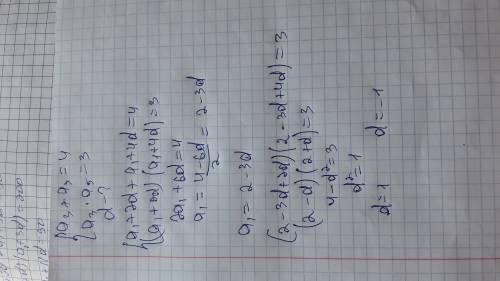 {a₃ + a₅ = 4
{a₃ · a₅ = 3
d - ?
{a₁+2d + a₁+4d = 4
{(a₁+2d) (a₁+4d) = 3
2a₁ + 6d = 4
a₁ = (4-6d)/2 = 2-3d
a₁ = 2-3d
(2-3d+2d) (2-3d+4d) = 3
(2-d) (2+d) = 3
4-d² = 3
d² = 1
d = 1 d = -1